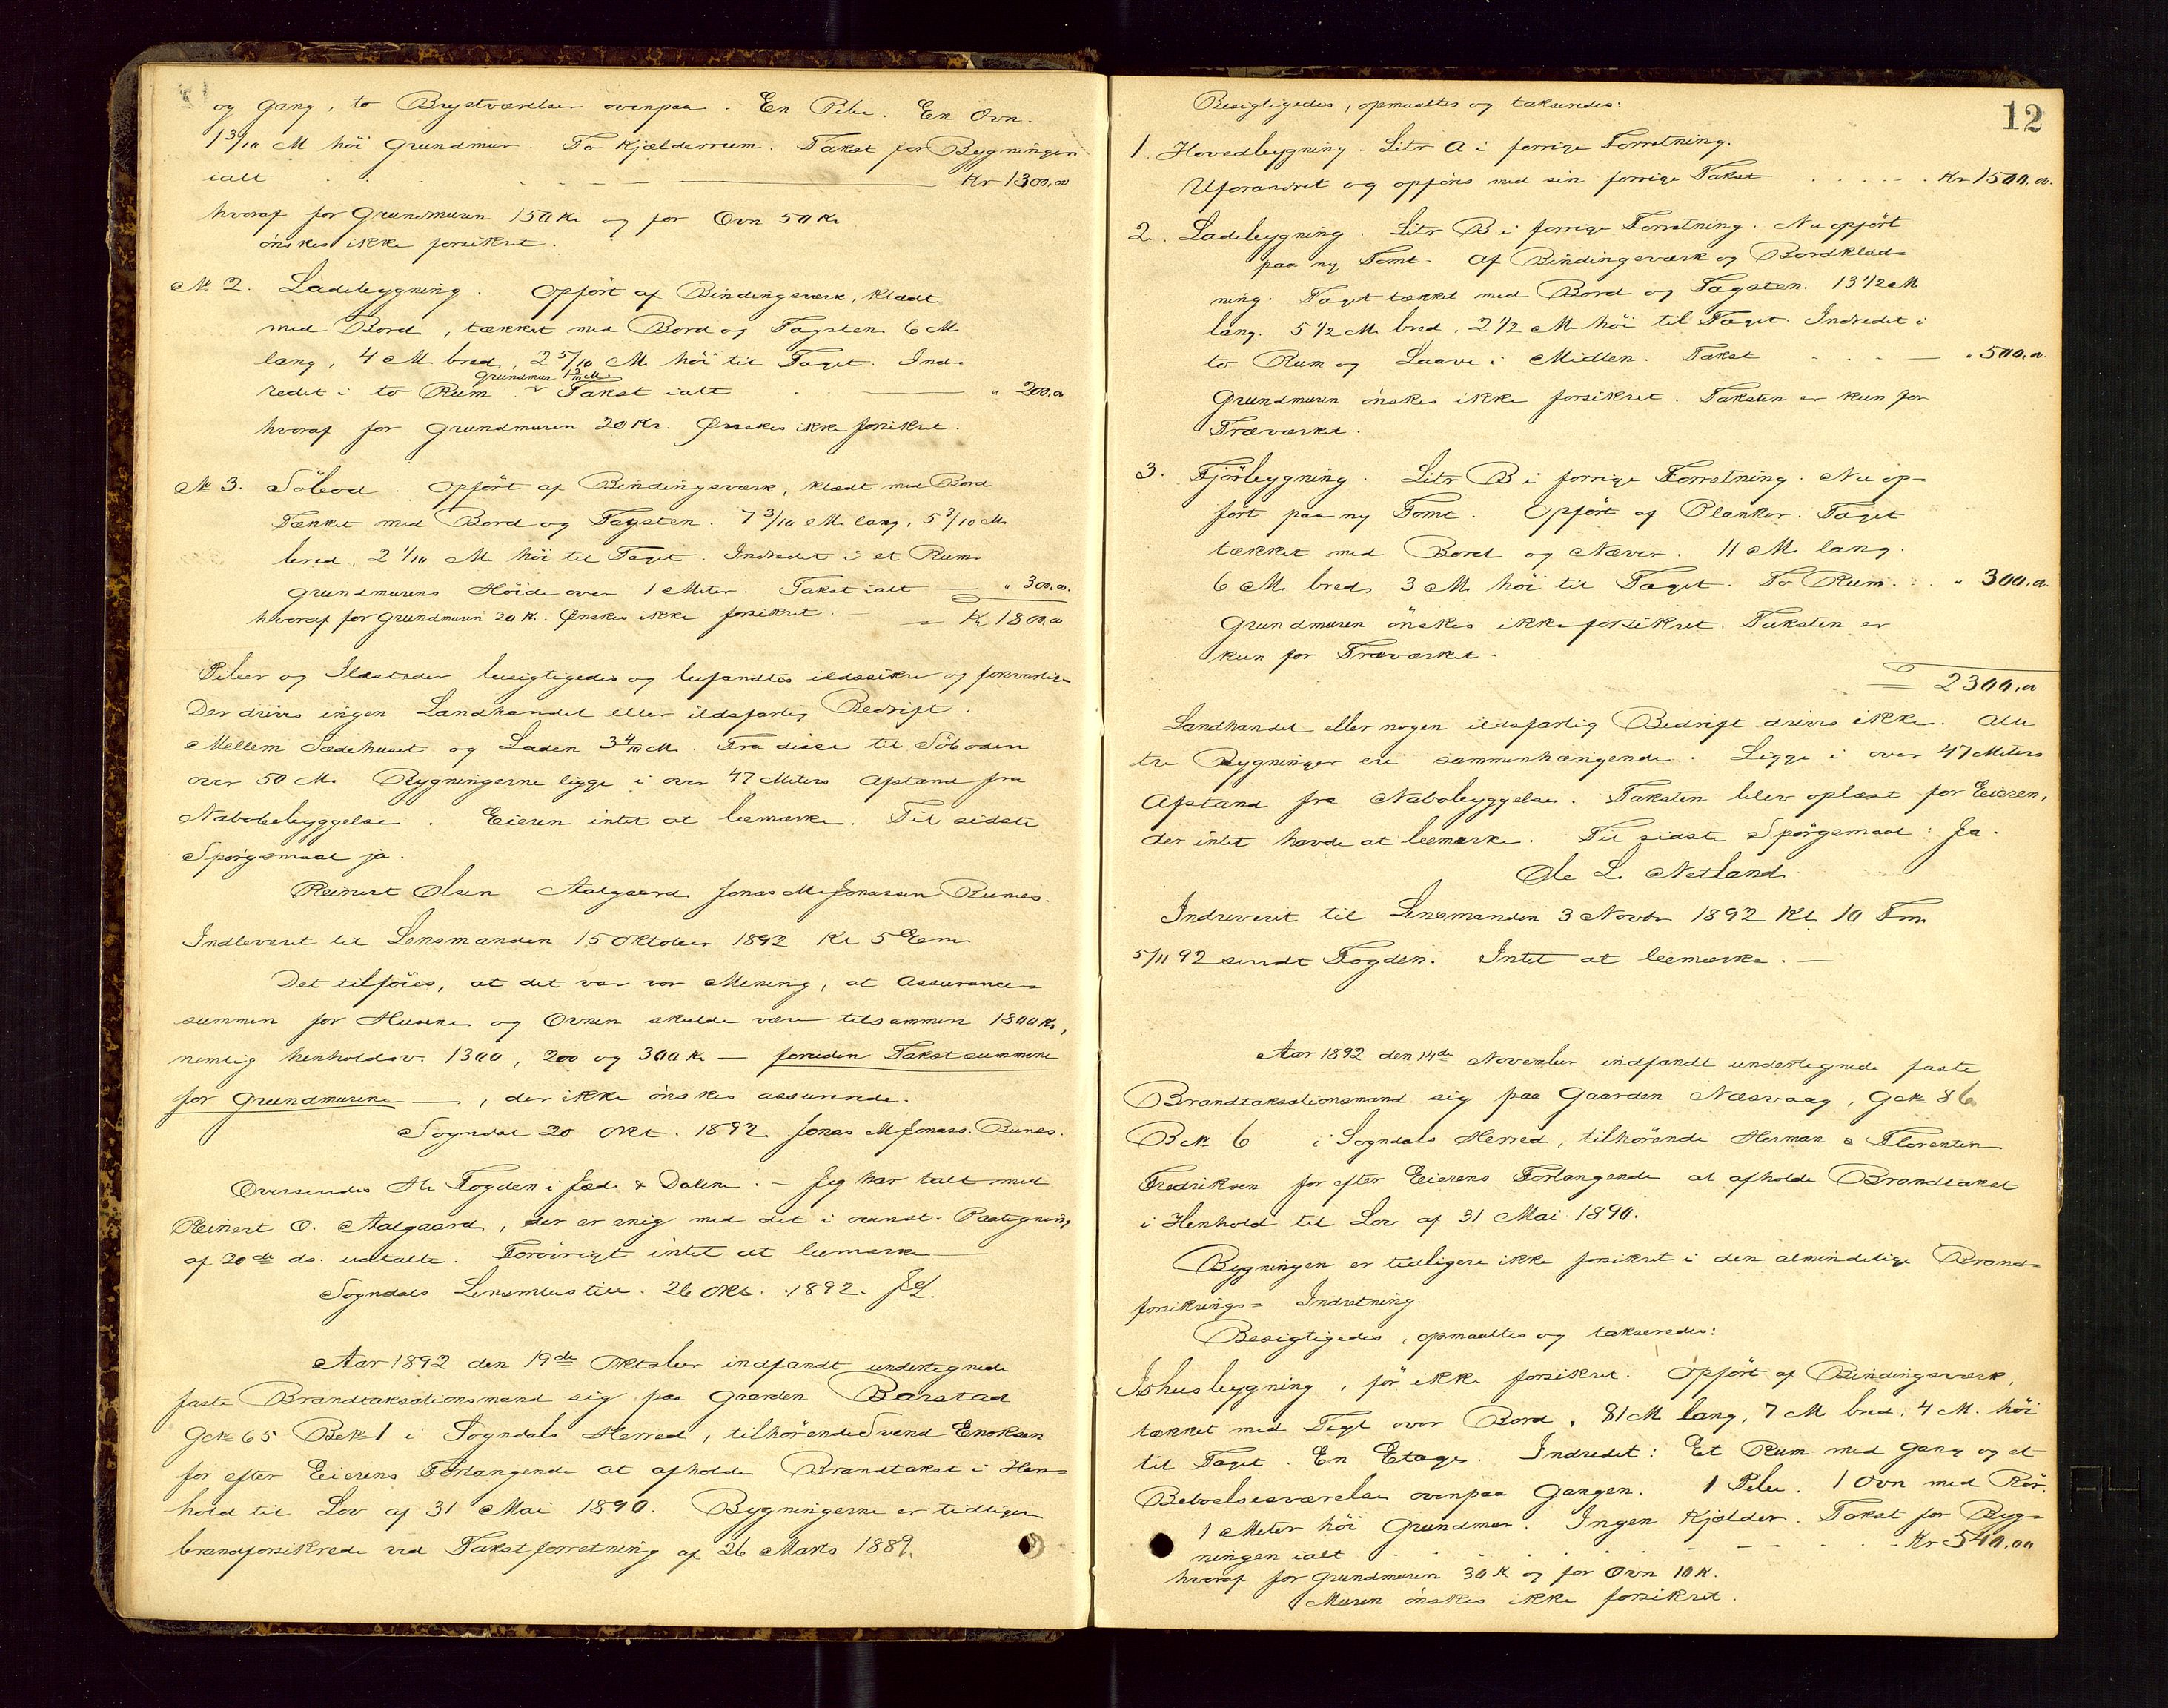 og Gang, to Brystværelser ovenpaa. En Pibe. En Ovn.
1 3/10 M höi Grundmur. To Kjælderrum. Takst for Bygningen
ialt . . . . — Kr 1300,00
hvoraf for Grundmuren 150 Kr og for Ovn 50 Kr
önskes ikke forsikret.
No 2. Ladebygning. Opfört af Bindingsværk, klædt
med Bord, tækket med Bord og Tagsten 6 M
lang, 4 M bred, 2 5/10 M höi til Taget. Ind-
Grundmur 1 2/10 M.
redet i to Rum. Takst ialt . . — " 200,00
hvoraf for Grundmuren 20 Kr. Ønskes ikke forsikret.
No 3. Söbod. Opfört af Bindingsværk, klædt med Bord
Tækket med Bord og Tagsten. 7 3/10 M lang, 5 3/10 M
bred, 2 1/10 M höi til Taget. Indredet i et Rum.
Grundmurens Höide over 1 Meter. Takst ialt — " 300,00.
hvoraf for Grundmuren 20 Kr. Ønskes ikke forsikret. — Kr 1800,00
Piber og Ildsteder besigtigedes og befandtes ildssikre og forsvarlige
Der drives ingen Landhandel eller ildsfarlig Bedrift.
Mellem Sædehuset og Laden 3 4/10 M. Fra disse til Söboden
over 50 M. Bygningerne ligge i over 47 Meters Afstand fra
Nabobebyggelse. Eieren intet at bemærke. Til sidste
Spörgsmaal ja.
Reinert Olsen Aalgaard Jonas M Jonassen Bunes.
Indleveret til Lensmanden 15 Oktober 1892 Kl 5 Eem
Det tilföies, at det var vor Mening, at Assurance-
summen for Husene og Ovnen skulde være tilsammen 1800 Kr,
nemlig henholdsv. 1300, 200 og 300 Kr — foruden Takstsummene
for Grundmurene —, der ikke önskes assurerede.
Sogndal 20 Okt. 1892. Jonas M Jonass. Bunes.
Oversendes Hr Fogden i Jæd. & Dalene. — Jeg har talt med
Reinert O. Aalgaard, der er enig med det i ovenst. Paategning
af 20de ds. udtalte. Forövrigt intet at bemærke —
Sogndals Lensmbestill. 26 Okt. 1892.
Aar 1892 den 19de Oktober indfandt undertegnede
faste Brandtaksationsmænd sig paa Gaarden Barstad
G.No 65 B.No 1 i Sogndals Herred, tilhörende Svend Enoksen
for efter Eierens Forlangende at afholde Brandtakst i Hen-
hold til Lov af 31 Mai 1890. Bygningerne er tidligere
brandforsikrede ved Takstforretning af 26 Marts 1889.
12
Besigtigedes, opmaaltes og takseredes:
1. Hovedbygning. Litr A i forrige Forretning.
Uforandret og opföres med sin forrige Takst . . . . . Kr 1500,00.
2. Ladebygning. Litr B i forrige Forretning. Nu opfört
paa ny Tomt. Af Bindingsværk og Bordklæd-
ning. Taget tækket med Bord og Tagsten. 13 1/2 M
lang. 5 1/2 M. bred. 2 1/2 M. höi til Taget. Indredet i
to Rum og Laave i Midten. Takst . . . . — " 500,00.
Grundmuren önskes ikke forsikret. Taksten er kun for
Træværket.
3. Fjösbygning. Litr B i forrige Forretning. Nu op-
fört paa ny Tomt. Opfört af Planker. Taget
tækket med Bord og Næver. 11 M. lang.
6 M. bred, 3 M. höi til Taget. To Rum. . . " 300,00.
Grundmuren önskes ikke forsikret. Taksten er
kun for Træværket.
2300,00
Landhandel eller nogen ildsfarlig Bedrift drives ikke. Alle
tre Bygninger ere sammenhængende. Ligge i over 47 Meters
Afstand fra Nabobyggelse. Taksten blev oplæst for Eieren,
der intet havde at bemærke. Til sidste Spörgsmaal: Ja.
Ole L. Netland
Indleveret til Lensmanden 3 Novbr 1892 Kl. 10 Fm
5/11 92 sendt Fogden. Intet at bemærke. —
Aar 1892 den 14de November indfandt undertegnede faste
Brandtaksationsmænd sig paa Gaarden Næsvaag, G.No 86
B.No 6 i Sogndals Herred, tilhörende Herman & Florentin
Fredriksen for efter Eierens Forlangende at afholde Brandtakst
i Henhold til Lov af 31 Mai 1890.
Bygningen er tidligere ikke forsikret i den almindelige Brand-
forsikrings- Indretning.
Besigtigedes, opmaaltes og takseredes:
Ishusbygning, för ikke forsikret. Opfört af Bindingsværk,
tækket med Tegl over Bord. 81 M lang, 7 M bred. 4 M. höi
til Taget. En Etage. Indredet: Et Rum med Gang og et
Beboelsesværelse ovenpaa Gangen. 1 Pibe. 1 Ovn med Rör.
1 Meter höi Grundmur. Ingen Kjælder. Takst for Byg-
ningen ialt . . . . . . . . . Kr 540,00
hvoraf for Grundmuren 30 K og for Ovn 10 K.
Muren önskes ikke forsikret.